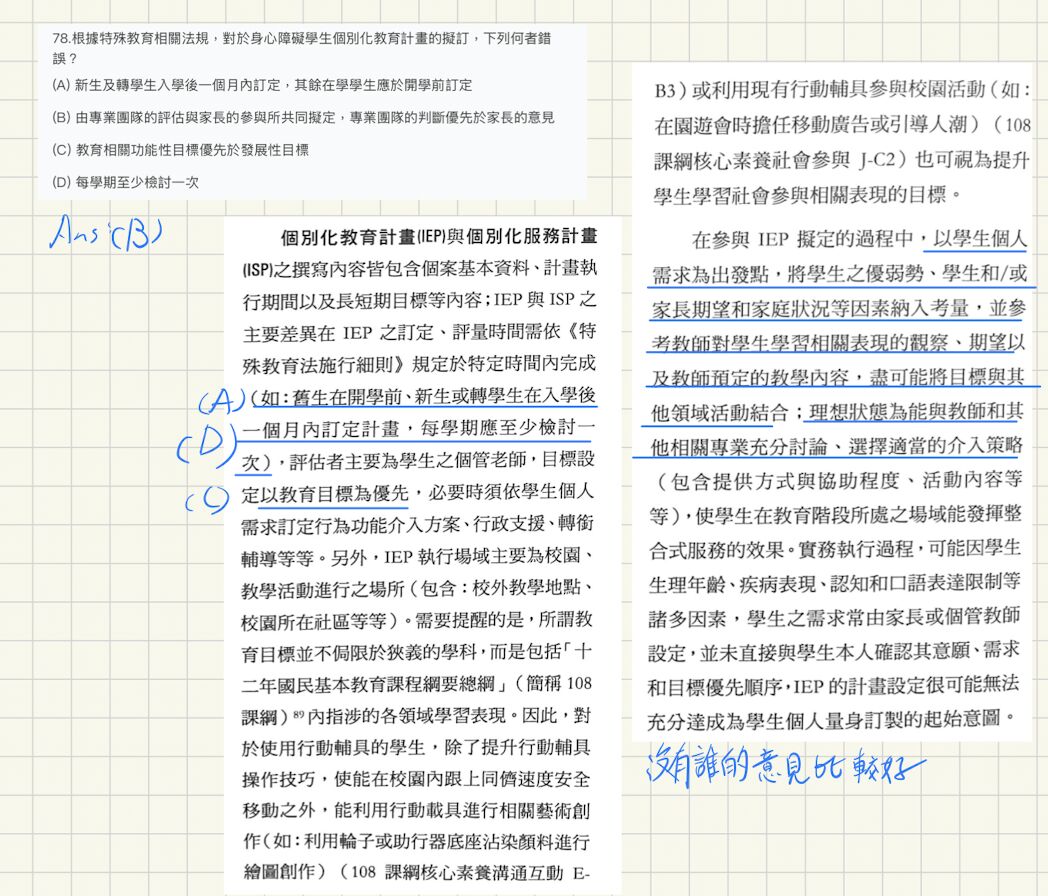 78.根據特殊教育相關法規，對於身心障礙學生個別化教育計畫的擬訂，下列何者錯
誤？
(A) 新生及轉學生入學後一個月內訂定，其餘在學學生應於開學前訂定
(B) 由專業團隊的評估與家長的參與所共同擬定，專業團隊的判斷優先於家長的意見
(C) 教育相關功能性目標優先於發展性目標
(D) 每學期至少檢討一次
Ans:(B)
個別化教育計畫(IEP)與個別化服務計畫
(ISP)之撰寫內容皆包含個案基本資料、計畫執
行期間以及長短期目標等內容；IEP 與 ISP 之
主要差異在 IEP 之訂定、評量時間需依《特
殊教育法施行細則》規定於特定時間內完成
(A)（如：舊生在開學前、新生或轉學生在入學後
(D) 一個月內訂定計畫，每學期應至少檢討一
次），評估者主要為學生之個管老師，目標設
(C) 定以教育目標為優先，必要時須依學生個人
需求訂定行為功能介入方案、行政支援、轉銜
輔導等等。另外，IEP 執行場域主要為校園、
教學活動進行之場所（包含：校外教學地點、
校園所在社區等等）。需要提醒的是，所謂教
育目標並不侷限於狹義的學科，而是包括「十
二年國民基本教育課程綱要總綱」（簡稱 108
課綱）⁸⁹內指涉的各領域學習表現。因此，對
於使用行動輔具的學生，除了提升行動輔具
操作技巧，使能在校園內跟上同儕速度安全
移動之外，能利用行動載具進行相關藝術創
作（如：利用輪子或助行器底座沾染顏料進行
繪圖創作）（108 課綱核心素養溝通互動 E-
B3）或利用現有行動輔具參與校園活動（如：
在園遊會時擔任移動廣告或引導人潮）（108
課綱核心素養社會參與 J-C2）也可視為提升
學生學習社會參與相關表現的目標。
在參與 IEP 擬定的過程中，以學生個人
需求為出發點，將學生之優弱勢、學生和/或
家長期望和家庭狀況等因素納入考量，並參
考教師對學生學習相關表現的觀察、期望以
及教師預定的教學內容，盡可能將目標與其
他領域活動結合；理想狀態為能與教師和其
他相關專業充分討論、選擇適當的介入策略
（包含提供方式與協助程度、活動內容等
等），使學生在教育階段所處之場域能發揮整
合式服務的效果。實務執行過程，可能因學生
生理年齡、疾病表現、認知和口語表達限制等
諸多因素，學生之需求常由家長或個管教師
設定，並未直接與學生本人確認其意願、需求
和目標優先順序，IEP 的計畫設定很可能無法
充分達成為學生個人量身訂製的起始意圖。
沒有誰的意見比較好